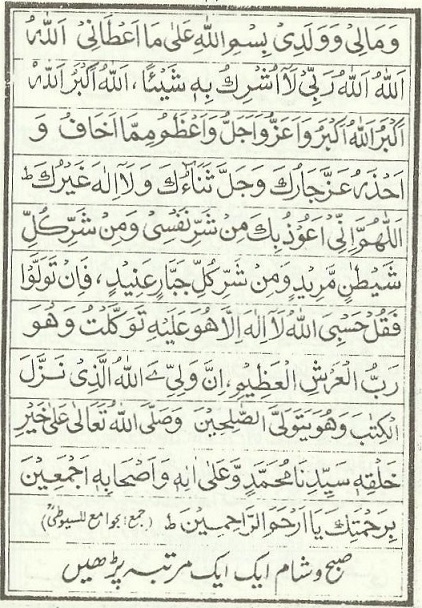 وَمَالِیْ وَوَلَدِیْ بِسْمِ اللّٰهِ عَلٰی مَا اَعْطَانِیْ اَللّٰهُ
اَللّٰهُ اَللّٰهُ رَبِّیْ لَآ اُشْرِكُ بِهٖ شَیْئًا، اَللّٰهُ اَكْبَرُ اَللّٰهُ
اَكْبَرُ اَللّٰهُ اَكْبَرُ وَاَعَزُّ وَاَجَلُّ وَاَعْظَمُ مِمَّا اَخَافُ وَ
اَحْذَرُ عَزَّ جَارُكَ وَجَلَّ ثَنَاءُكَ وَلَآ اِلٰهَ غَیْرُكَ ط
اَللّٰهُمَّ اِنِّیْ اَعُوْذُ بِكَ مِنْ شَرِّ نَفْسِیْ وَمِنْ شَرِّ كُلِّ
شَیْطٰنٍ مَّرِیْدٍ وَمِنْ شَرِّ كُلِّ جَبَّارٍ عَنِیْدٍ، فَاِنْ تَوَلَّوْا
فَقُلْ حَسْبِیَ اللّٰهُ لَآ اِلٰهَ اِلَّا هُوَ عَلَیْهِ تَوَكَّلْتُ وَهُوَ
رَبُّ الْعَرْشِ الْعَظِیْمِ، اِنَّ وَلِیِّ ےَ اللّٰهُ الَّذِیْ نَزَّلَ
الْكِتٰبَ وَهُوَ یَتَوَلَّی الصّٰلِحِیْنَ وَصَلَّی اللّٰهُ تَعَالٰی عَلٰی خَیْرِ
خَلْقِهٖ سَیِّدِنَا مُحَمَّدٍ وَّعَلٰی اٰلِهٖ وَاَصْحَابِهٖ اَجْمَعِیْنَ
بِرَحْمَتِكَ یَا اَرْحَمَ الرَّاحِمِیْنَ ط (جمع: جوامع للسیوطیؒ)
صبح و شام ایک ایک مرتبہ پڑھیں